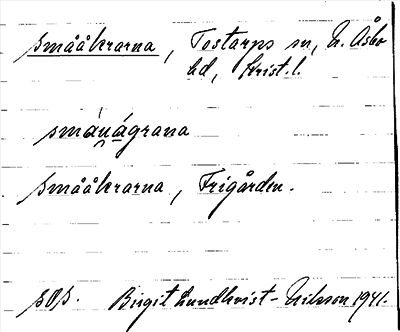 Smååkrarna, Tostarps sn, N. Åsbo
hd, Krist. l.
småuágrana
Småååkrarna, Frigården.
sOs. Birgit Lundkvist-Nilsson 1941.